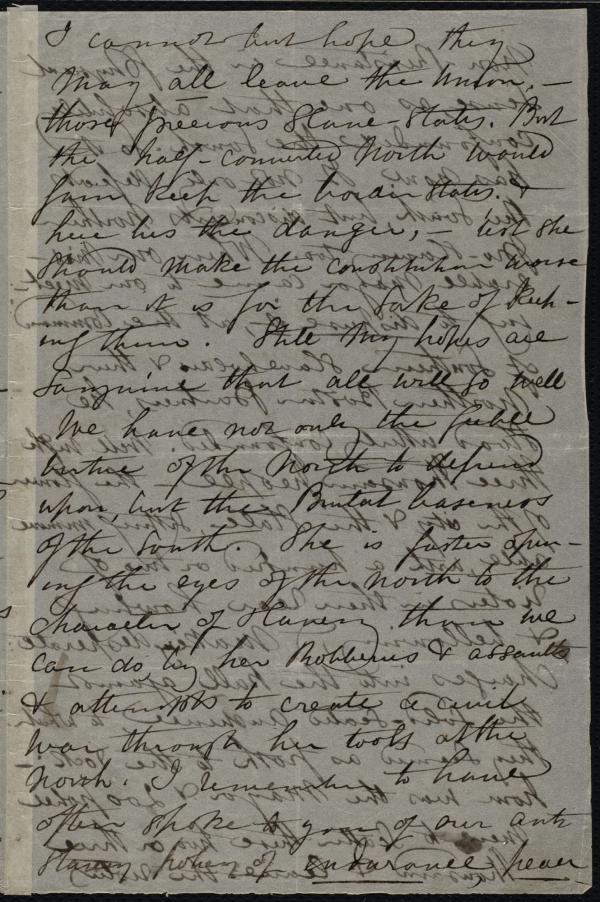 I cannot but hope they
may all leave the Union, —
those precious Slave-States. But
the half-converted North would
fain keep the border States. &
here lies the danger, — lest she
should make the constitution worse
than it is for the sake of keep-
ing them. Still my hopes are
sanguine that all will go well
We have not only the feeble
virtue of the North to depend
upon, but the Brutal baseness
of the South. She is faster open-
ing the eyes of the North to the
character of Slavery than we
can do by her Robberies & assaults
& attempts to create a civil
war through her tools at the
North. I remember to have
often spoke to you of our anti
Slavery power of endurance, never